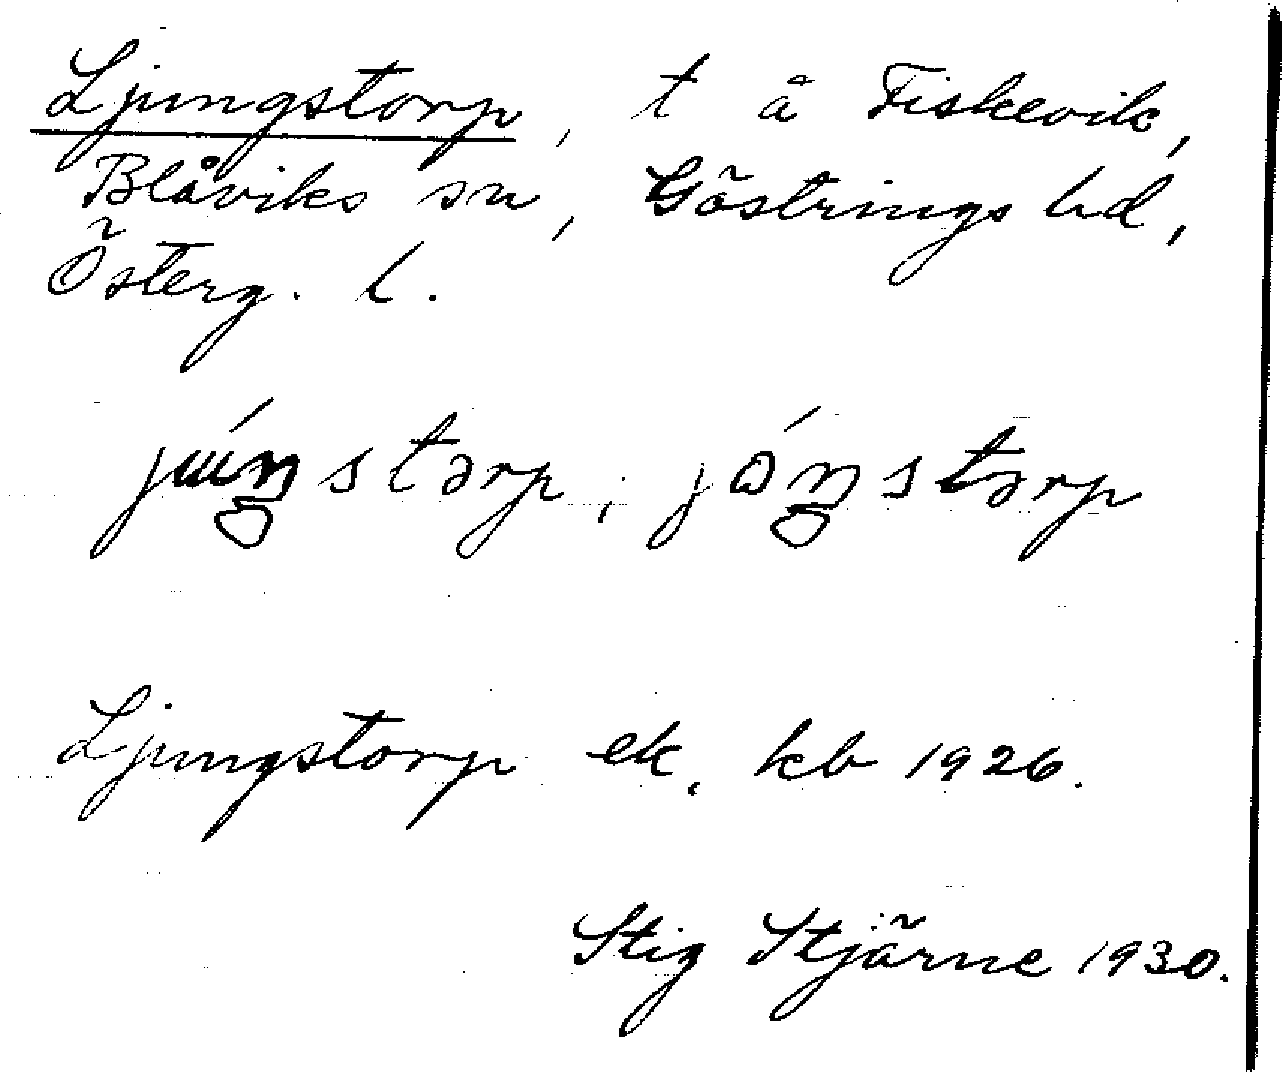 Ljungstorp, t å Fiskevik,
Blåviks sn, Göstrings hd,
Österg. l.
júŋstərp, jóŋstərp
Ljungstorp ek. kb 1926.
Stig Stjärne 1930.